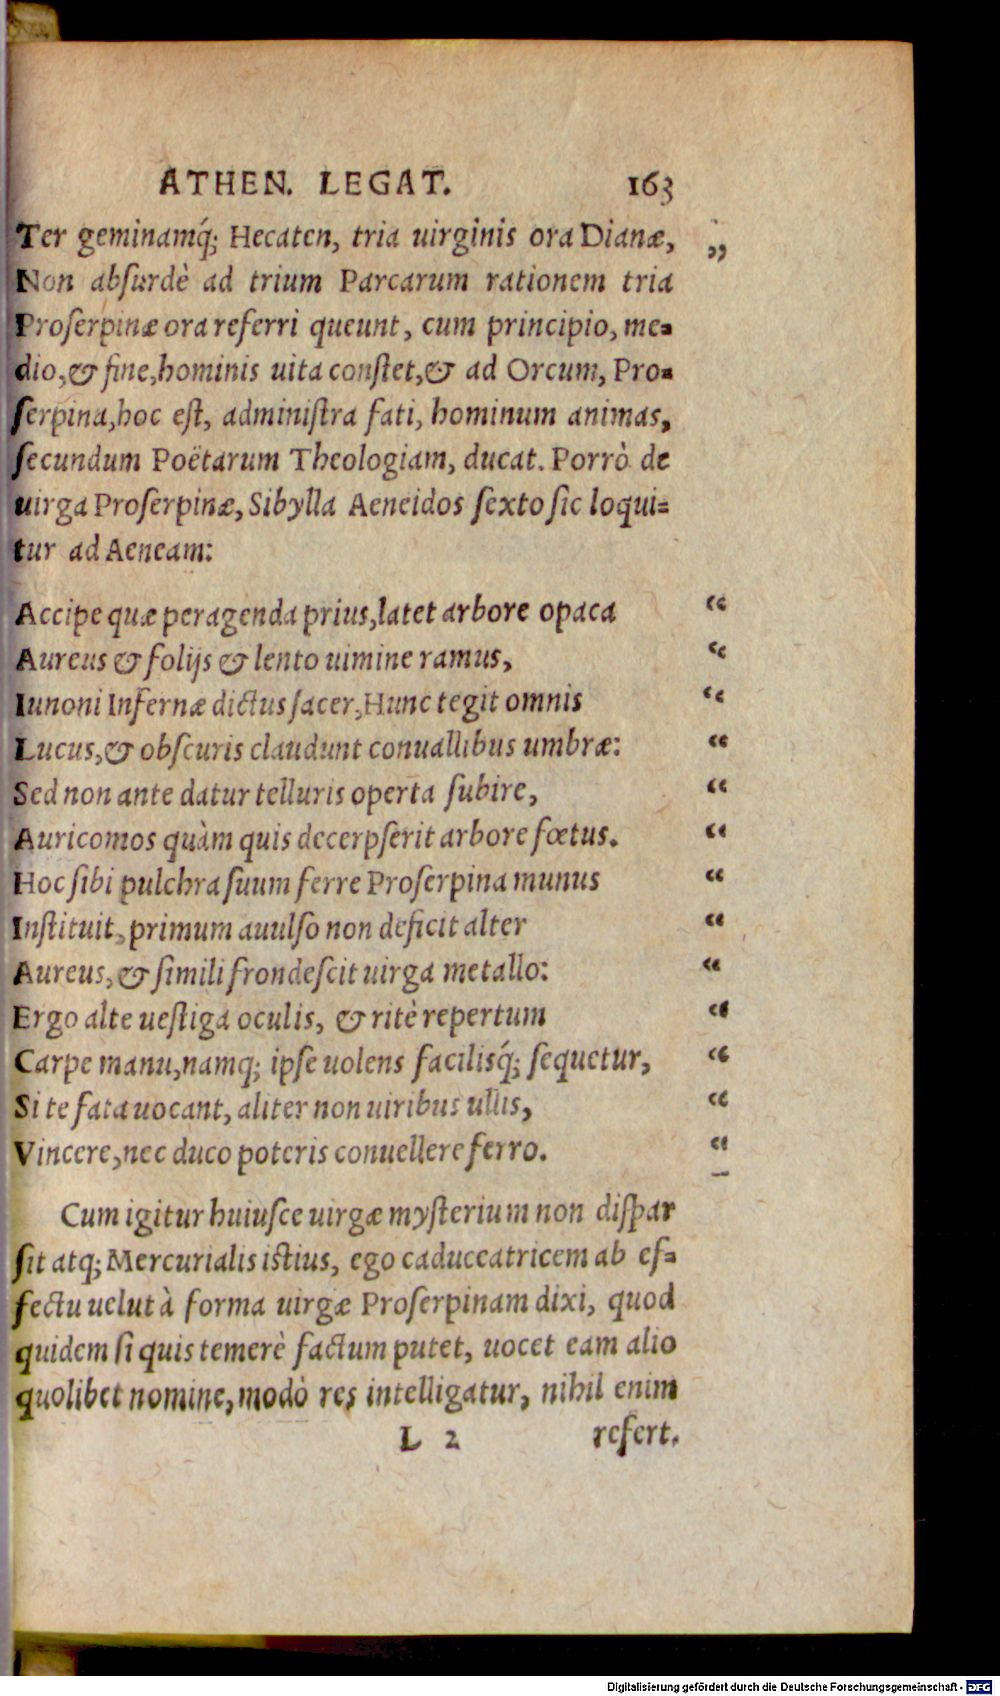 ATHEN. LEGAT. 163
Ter geminamq́; Hecaten, tria uirginis ora Dianæ, „
Non abſurdè ad trium Parcarum rationem tria
Proſerpinæ ora referri queunt, cum principio, me-
dio, & fine, hominis uita conſtet, & ad Orcum, Pro-
ſerpina, hoc eſt, adminiſtra fati, hominum animas,
ſecundum Poëtarum Theologiam, ducat. Porrò de
uirga Proſerpinæ, Sibylla Aeneidos ſexto ſic loqui-
tur ad Aeneam:
Accipe quæ peragenda prius, latet arbore opaca “
Aureus & folijs & lento uimine ramus, “
Iunoni Infernæ dictus ſacer, Hunc tegit omnis “
Lucus, & obſcuris claudunt conuallibus umbræ: “
Sed non ante datur telluris operta ſubire, “
Auricomos quàm quis decerpſerit arbore fœtus. “
Hoc ſibi pulchra ſuum ferre Proſerpina munus “
Inſtituit, primum auulſo non deficit alter “
Aureus, & ſimili frondeſcit uirga metallo: “
Ergo alte ueſtiga oculis, & ritè repertum “
Carpe manu, namq; ipſe uolens facilisq́; ſequetur, “
Si te fata uocant, aliter non uiribus ullis, “
Vincere, nec duco poteris conuellere ferro. “
Cum igitur huiuſce uirgæ myſterium non diſpar
ſit atq; Mercurialis iſtius, ego caduceatricem ab ef-
fectu uelut à forma uirgæ Proſerpinam dixi, quod
quidem ſi quis temerè factum putet, uocet eam alio
quolibet nomine, modò res intelligatur, nihil enim
L 2 refert.
Digitalisierung gefördert durch die Deutsche Forschungsgemeinschaft - DFG